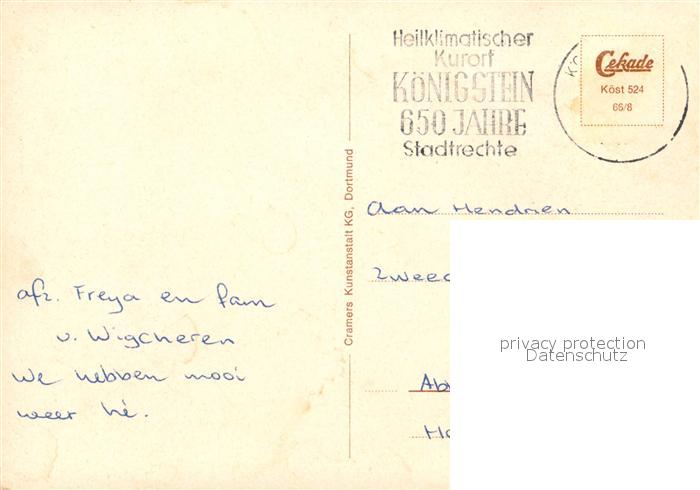 Heilklimatischer
Kurort
KÖNIGSTEIN
650 JAHRE
Stadtrechte
Cekade
Köst 524
66/8
Cramers Kunstanstalt KG, Dortmund
Aan Hendrien
afz. Freya en fam
v. Wigcheren
We hebben mooi
weer hè.
privacy protection
Datenschutz